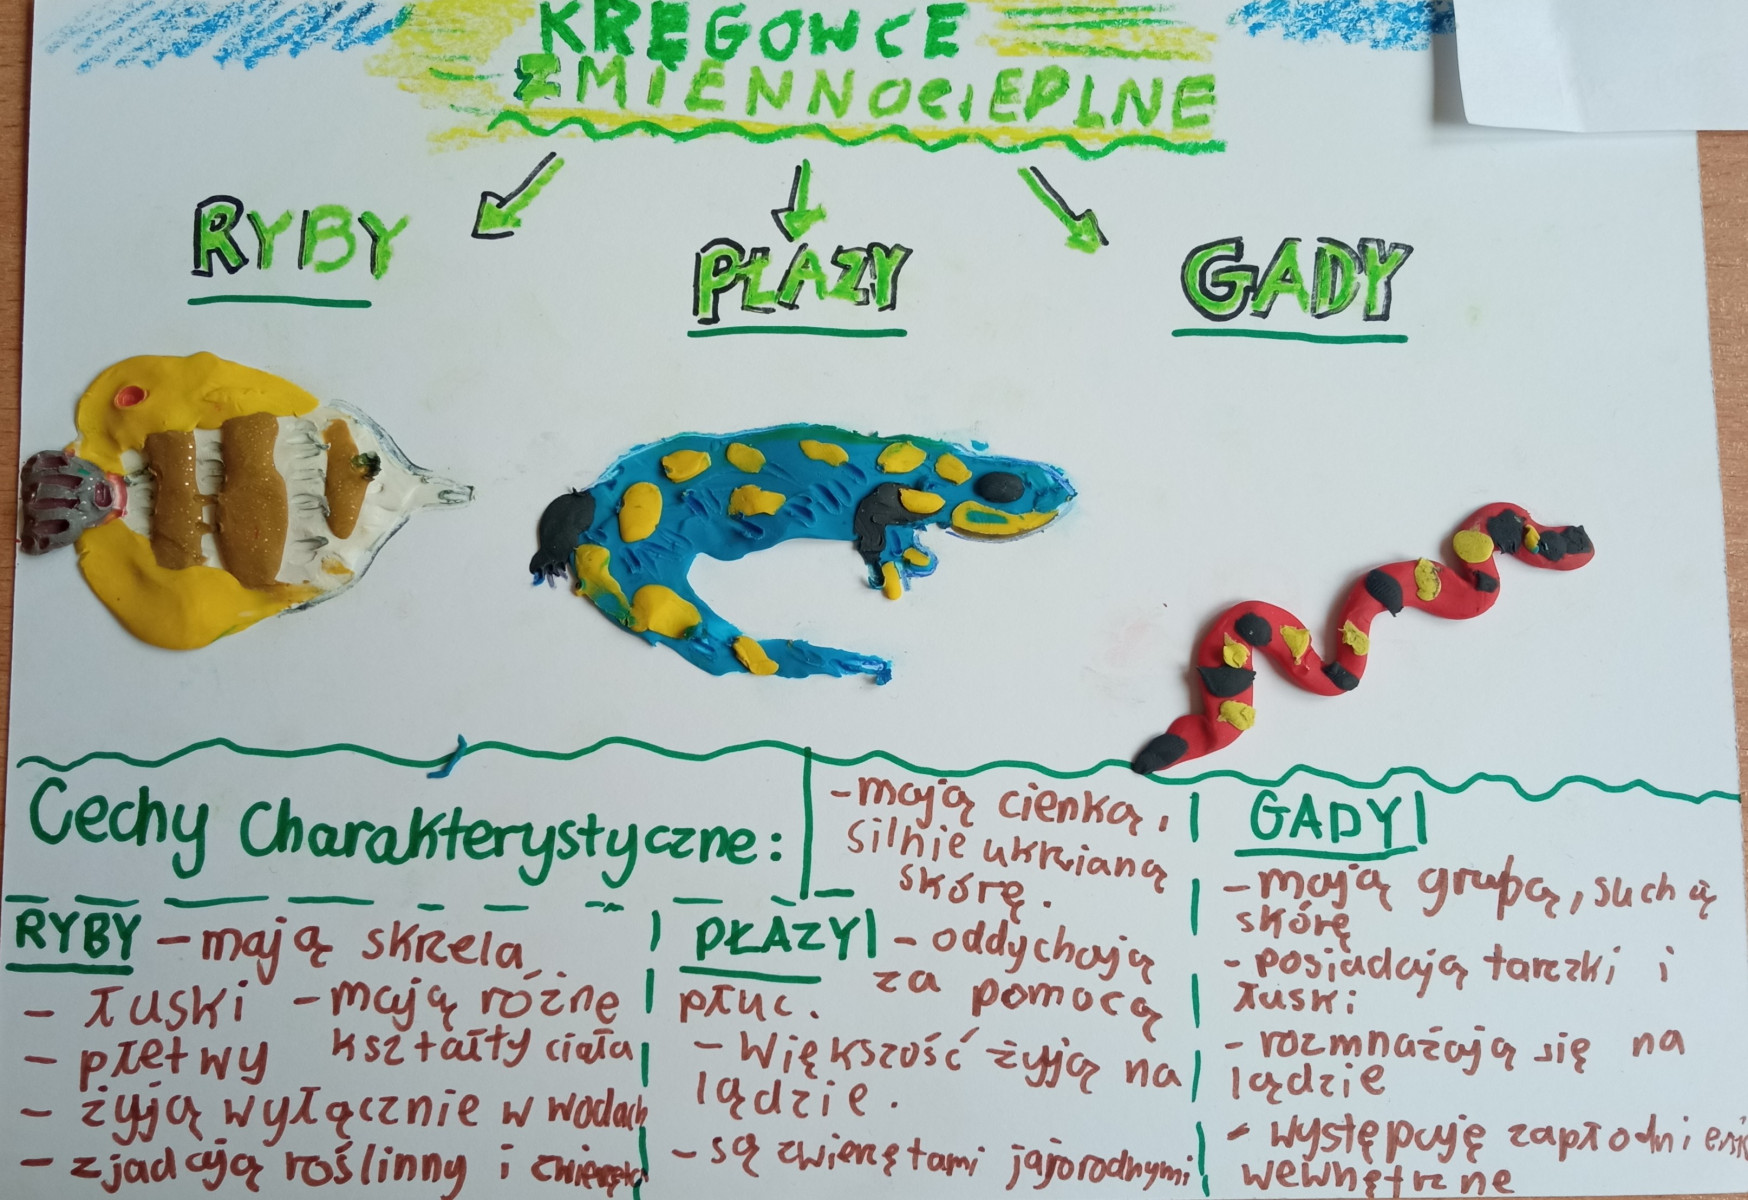 KRĘGOWCE
ZMIENNOCIEPLNE
RYBY
PŁAZY
GADY
Cechy Charakterystyczne:
RYBY - mają skrzela
- łuski - mają różnę
kształty ciała
- płetwy
- żyją wyłącznie w wodach
- zjadają roślinny i zwierzęta
- mają cienką,
silnie ukrwianą
skórę.
PŁAZY - oddychają
za pomocą
płuc.
- Większość żyją na
lądzie.
- są zwierzętami jajorodnymi
GADY
- mają grubą, suchą
skórę
- posiadają tarczki i
łuski
- rozmnażają się na
lądzie
- występuję zapłodnienie
wewnętrzne